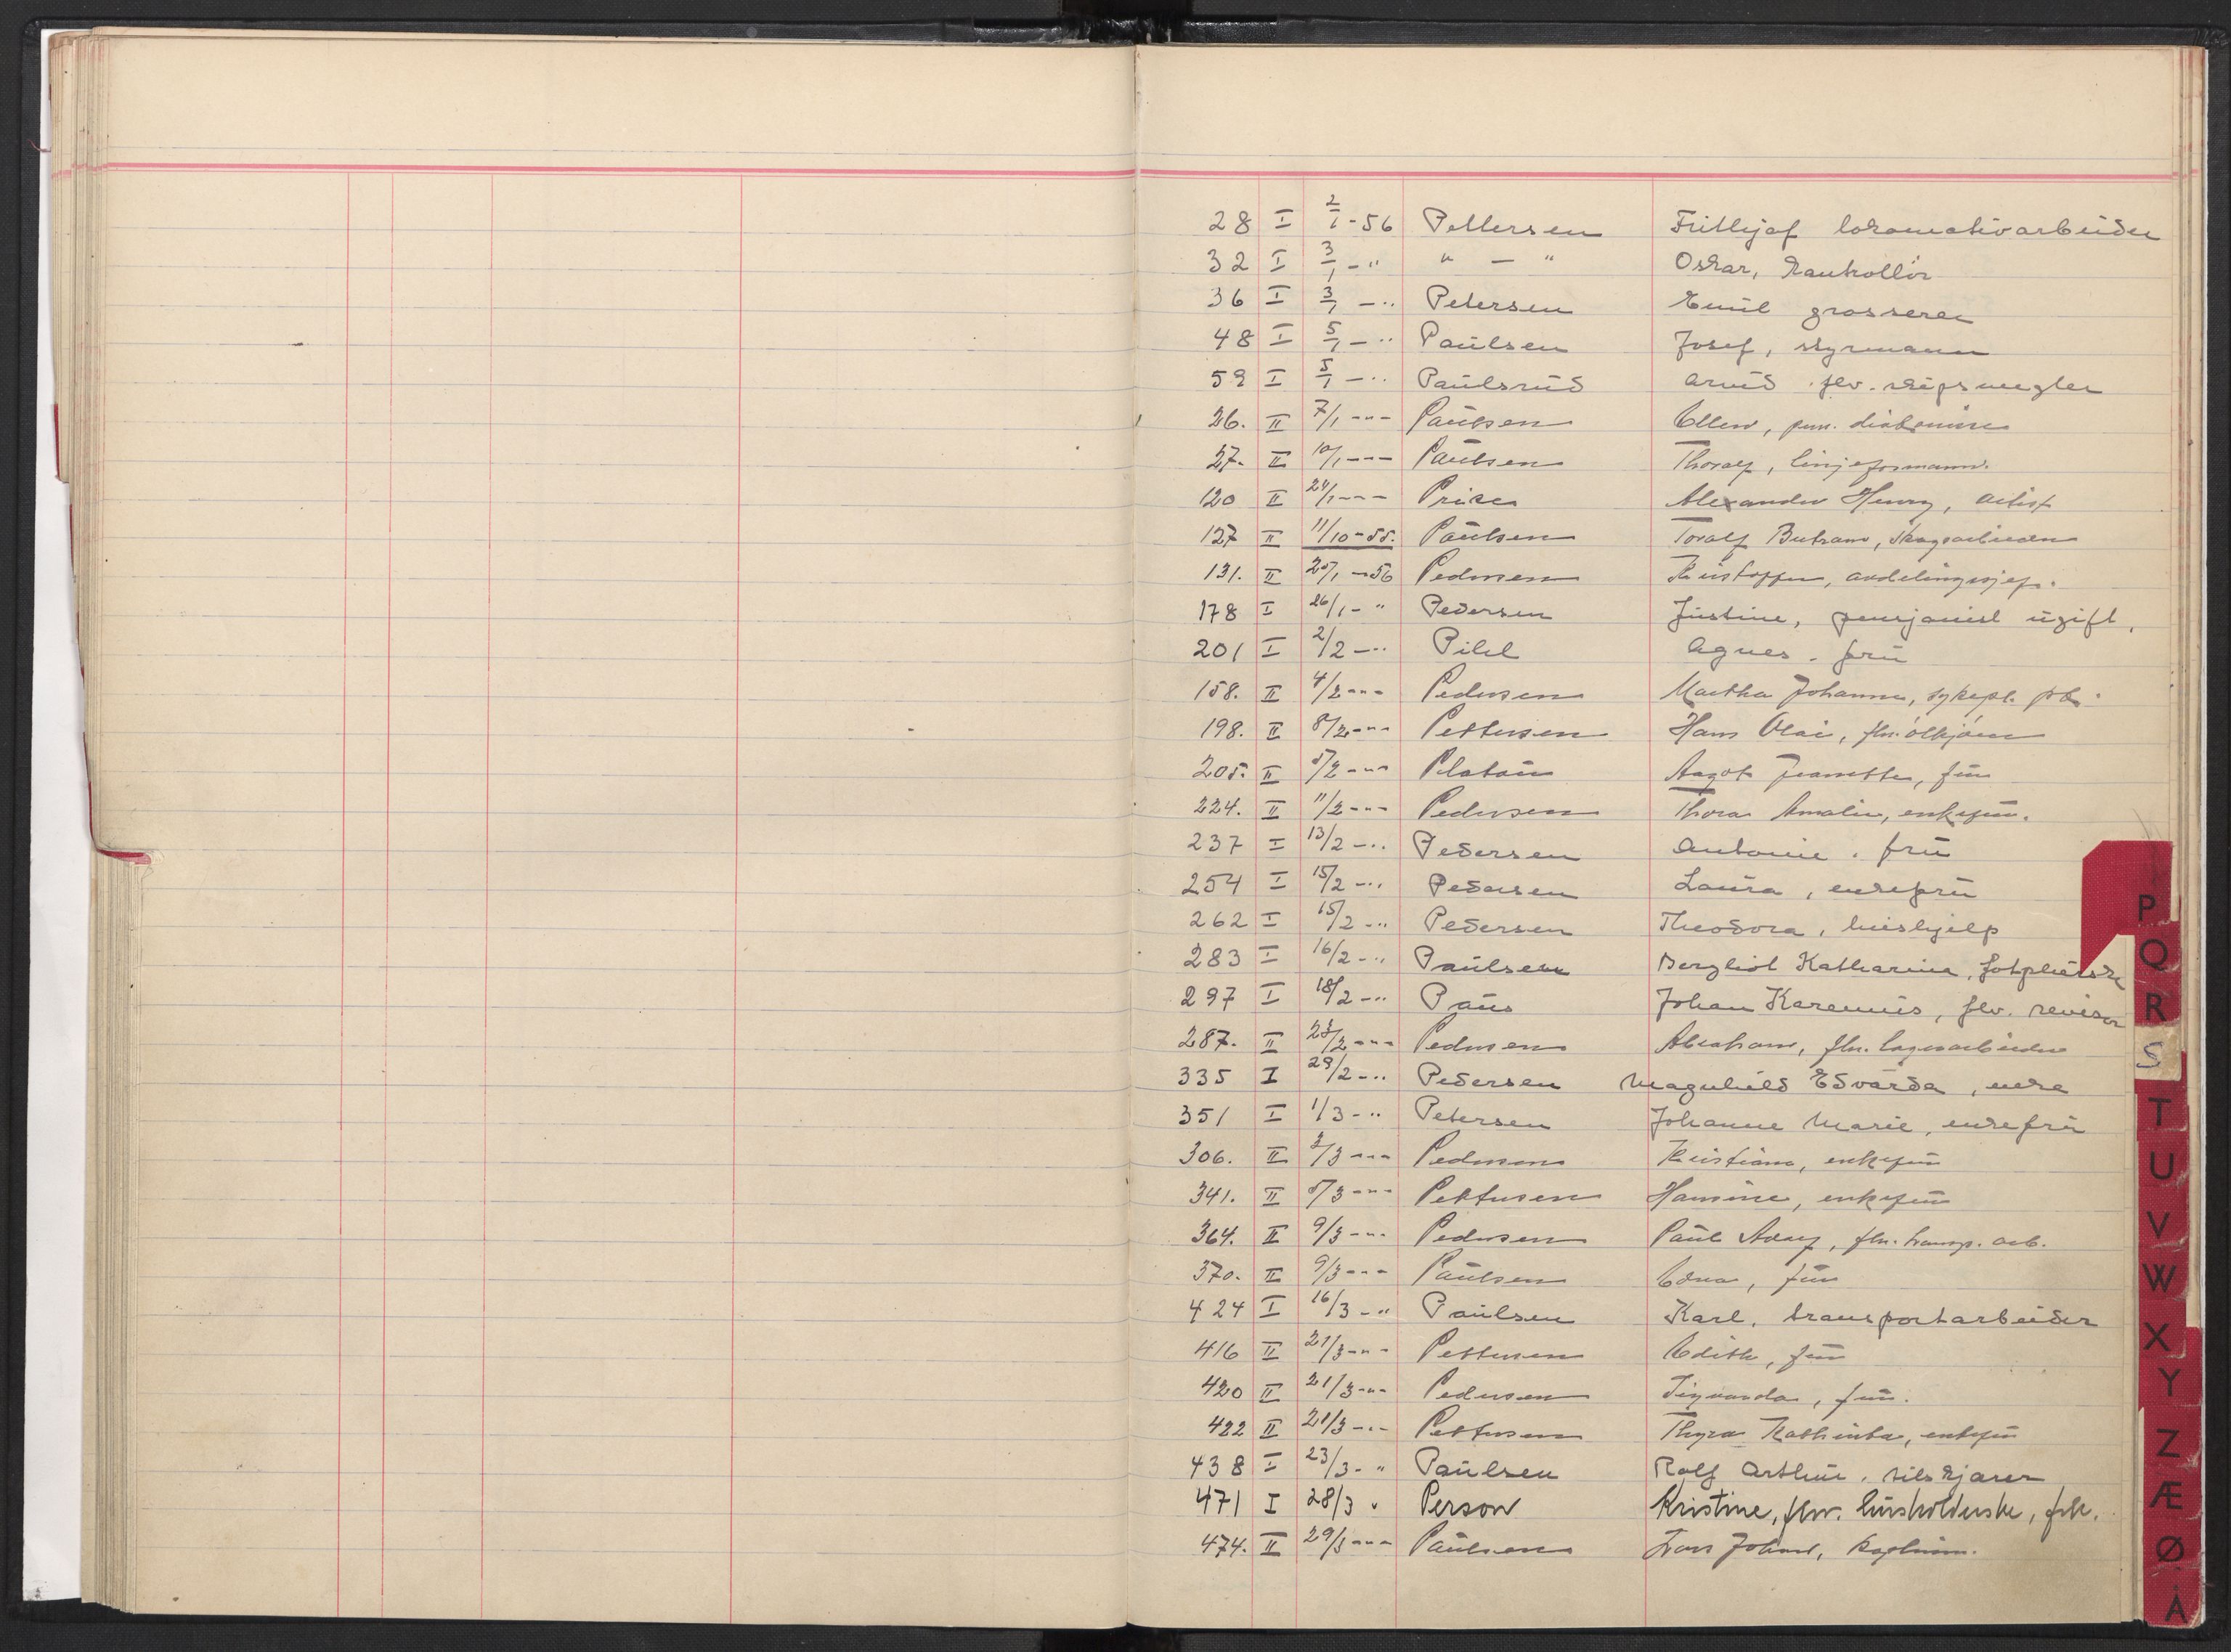 28 I 2/1-56 Pettersen Frithjof lokomotivarbeider
32 I 3/1-" " — " Oskar, kontrollør
36 I 3/1-" Petersen Emil grosserer
48 I 5/1-" Paulsen Josef, styrmann
59 I 5/1-" Paulsrud Arvid. flv. skipsmegler
26. II 7/1-"- Paulsen Ellen, pens.
27. II 10/1-"- Paulsen Thoralf, linjeformann.
120 II 24/1-"- Price Alexander Henry, artist
127 II 11/10-55. Paulsen Toralf Bertram, skogsarbeider
131. II 25/1-56 Pedersen Kristoffer, avdelingssjef.
178 I 26/1-" Pedersen Justine, pensjonist ugift.
201 I 2/2-" Pihl Agnes. fru
158. II 4/2-"- Pedersen Martha Johanne, sykepl.
198. II 8/2-"- Pettersen Hans Olai, flv. ølkjører
205. II 5/2-"- Platou Aagot Jeanette, fru
224. II 11/2-"- Pedersen Thora Amalie, enkefru.
237 I 13/2-" Pedersen Antonie. fru
254 I 15/2-" Pedersen Laura, enkefru
262 I 15/2-" Pedersen Theodora, hushjelp
283 I 16/2-" Paulsen Bergliot Katharina, fotpleierske
297 I 18/2-" Paus Johan Karenius, flv. revisor
287. II 23/2-"- Pedersen Abraham, flv. lagerarbeider
335 I 29/2-" Pedersen Magnhild Edvarda, enke
351 I 1/3-" Petersen Johanne Marie, enkefru
306. II 2/3-"- Pedersen Kristiane, enkefru
341. II 5/3-"- Pettersen Hansine, enkefru
364. II 9/3-"- Pedersen Paul Adolf, flv. transp. arb.
370. II 9/3-"- Paulsen Edna, fru
424 I 16/3-" Paulsen Karl, transportarbeider
416 II 21/3-"- Pettersen Edith, fru
420 II 21/3-"- Pedersen Sigvarda, fru.
422 II 21/3-"- Pettersen Thyra Kathinka, enkefru
438 I 23/3-" Paulsen Rolf Arthur. bilskjører
471 I 28/3 " Person Kristine, flv. husholderske, frk.
474. II 29/3-"- Paulsen Johan, kaptein.
P
Q
R
S
T
U
V
W
X
Y
Z
Æ
Ø
Å